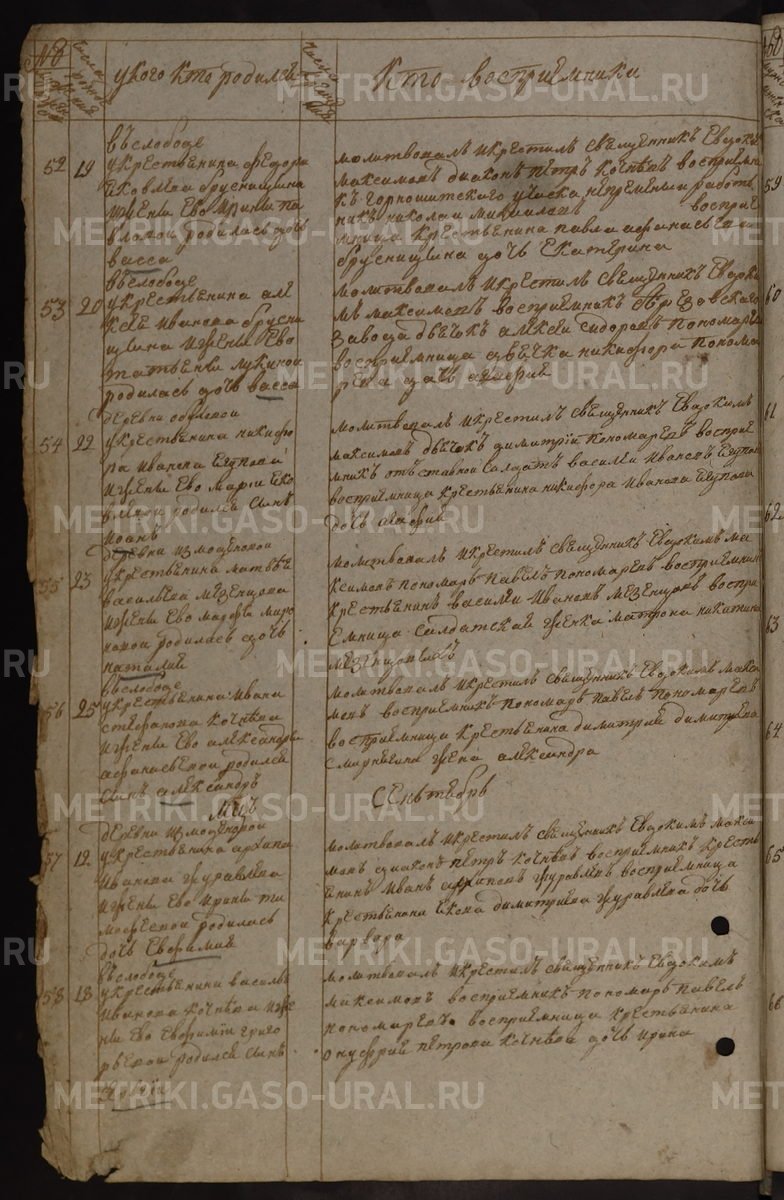 №
у кого кто родился
Кто восприемники
въ слободе
52 19 укрестьянина федора
яковлева брусницына
ижены ево ирины па
вловой родилась дочь
васса
молитвовалъ икрестилъ священникъ Евдокимъ
максимовъ диаконъ пётръ кочнёвъ восприемни
къ горнощитского непременной работ
никъ николай восприе
мница крестьянина павла афанасьева
брусницына дочь Екатерина
въ слободе
53 20 укрестьянина але
ксея иванова брусни
цына ижены Ево
татьяны лукиной
родилась дочь васса
молитвовалъ икрестилъ священникъ Евдоки
мъ максимовъ восприемникъ березовского
завода дьячокъ алексей сидоровъ пономаревъ
восприемница дьячка никифора понома
рева дочь
деревни
54 22 укрестьянина никифо
ра иванова
ижены Ево марьи яко
влевой родился сынъ
иоаннъ
молитвовалъ икрестилъ священникъ Евдокимъ
максимовъ дьячокъ димитрий пономаревъ восприе
мникъ отъставной салдатъ василей ивановъ
восприемница крестьянина никифора иванова
дочь
деревни измоденовой
55 23 укрестьянина матвея
васильева мезенцова
ижены Ево марфы миро
новой родилась дочь
наталия
молитвовалъ икрестилъ священникъ Евдокимъ ма
ксимовъ пономарь павелъ пономаревъ восприемникъ
крестьянинъ василий ивановъ мезенцовъ воспри
емница салдатская жёнка матрона никитина
мезенцовыхъ
въ слободе
56 25 укрестьянина ивана
стефанова кочнева
ижены Ево александры
афанасьевой родился
сынъ александръ
молитвовалъ икрестилъ священникъ Евдокимъ макси
мовъ восприемникъ пономарь павелъ пономаревъ
восприемница крестьянина димитрия димитриева
смирнягина жена александра
Мцъ Сентябрь
деревни измоденовой
57 12 укрестьянина архипа
иванова журавлева
ижены Ево ирины ти
мофеевой родилась
дочь Евфимия
молитвовалъ икрестилъ священникъ Евдокимъ макси
мовъ диаконъ пётръ кочнёвъ восприемникъ кресть
янинъ иванъ архиповъ журавлёвъ восприемница
крестьянина якова димитриева журавлева дочь
варвара
въ слободе
58 13 укрестьянина василья
иванова кочнева иже
ны Ево Евфимии григо
рьевой родился сынъ
молитвовалъ икрестилъ священникъ Евдокимъ
максимовъ восприемникъ пономарь павелъ
пономаревъ восприемница крестьянина
онуфрия пётрова кочнева дочь ирина
59
60
61
62
63
64
65
66
METRIKI.GASO-URAL.RU